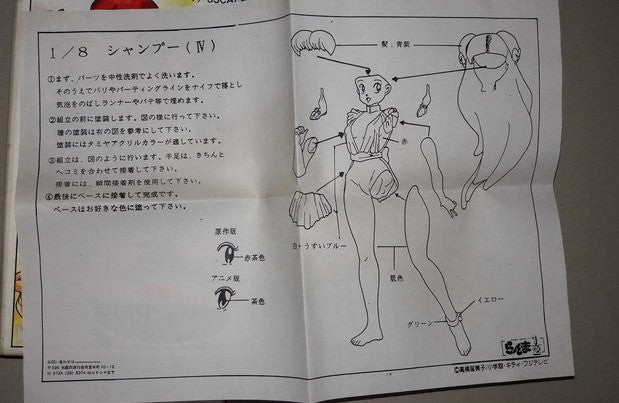 1/8 シャンプー(Ⅳ)
①まず、パーツを中性洗剤でよく洗います。
そのうえでバリやパーティングラインをナイフで落とし
気泡をのばしランナーやパテ等で埋めます。
②組立の前に塗装します。図の様に行って下さい。
瞳の塗装は右の図を参考にして下さい。
塗装にはタミヤアクリルカラーが適しています。
③組立は、図のように行います。手足は、きちんと
ヘコミを合わせて接着して下さい。
接着には、瞬間接着剤を使用して下さい。
④最後にベースに接着して完成です。
ベースはお好きな色に塗って下さい。
原作版
赤茶色
アニメ版
茶色
髪:青紫
赤
白+うすいブルー
肌色
イエロー
グリーン
らんま1/2
©高橋留美子/小学館・キティ・フジテレビ